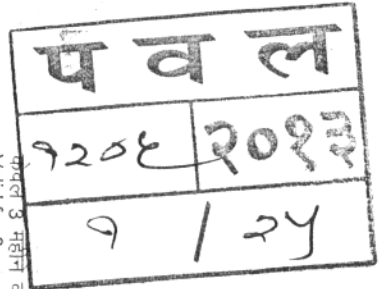 प व ल
१२०६ २०१३
१ / २५